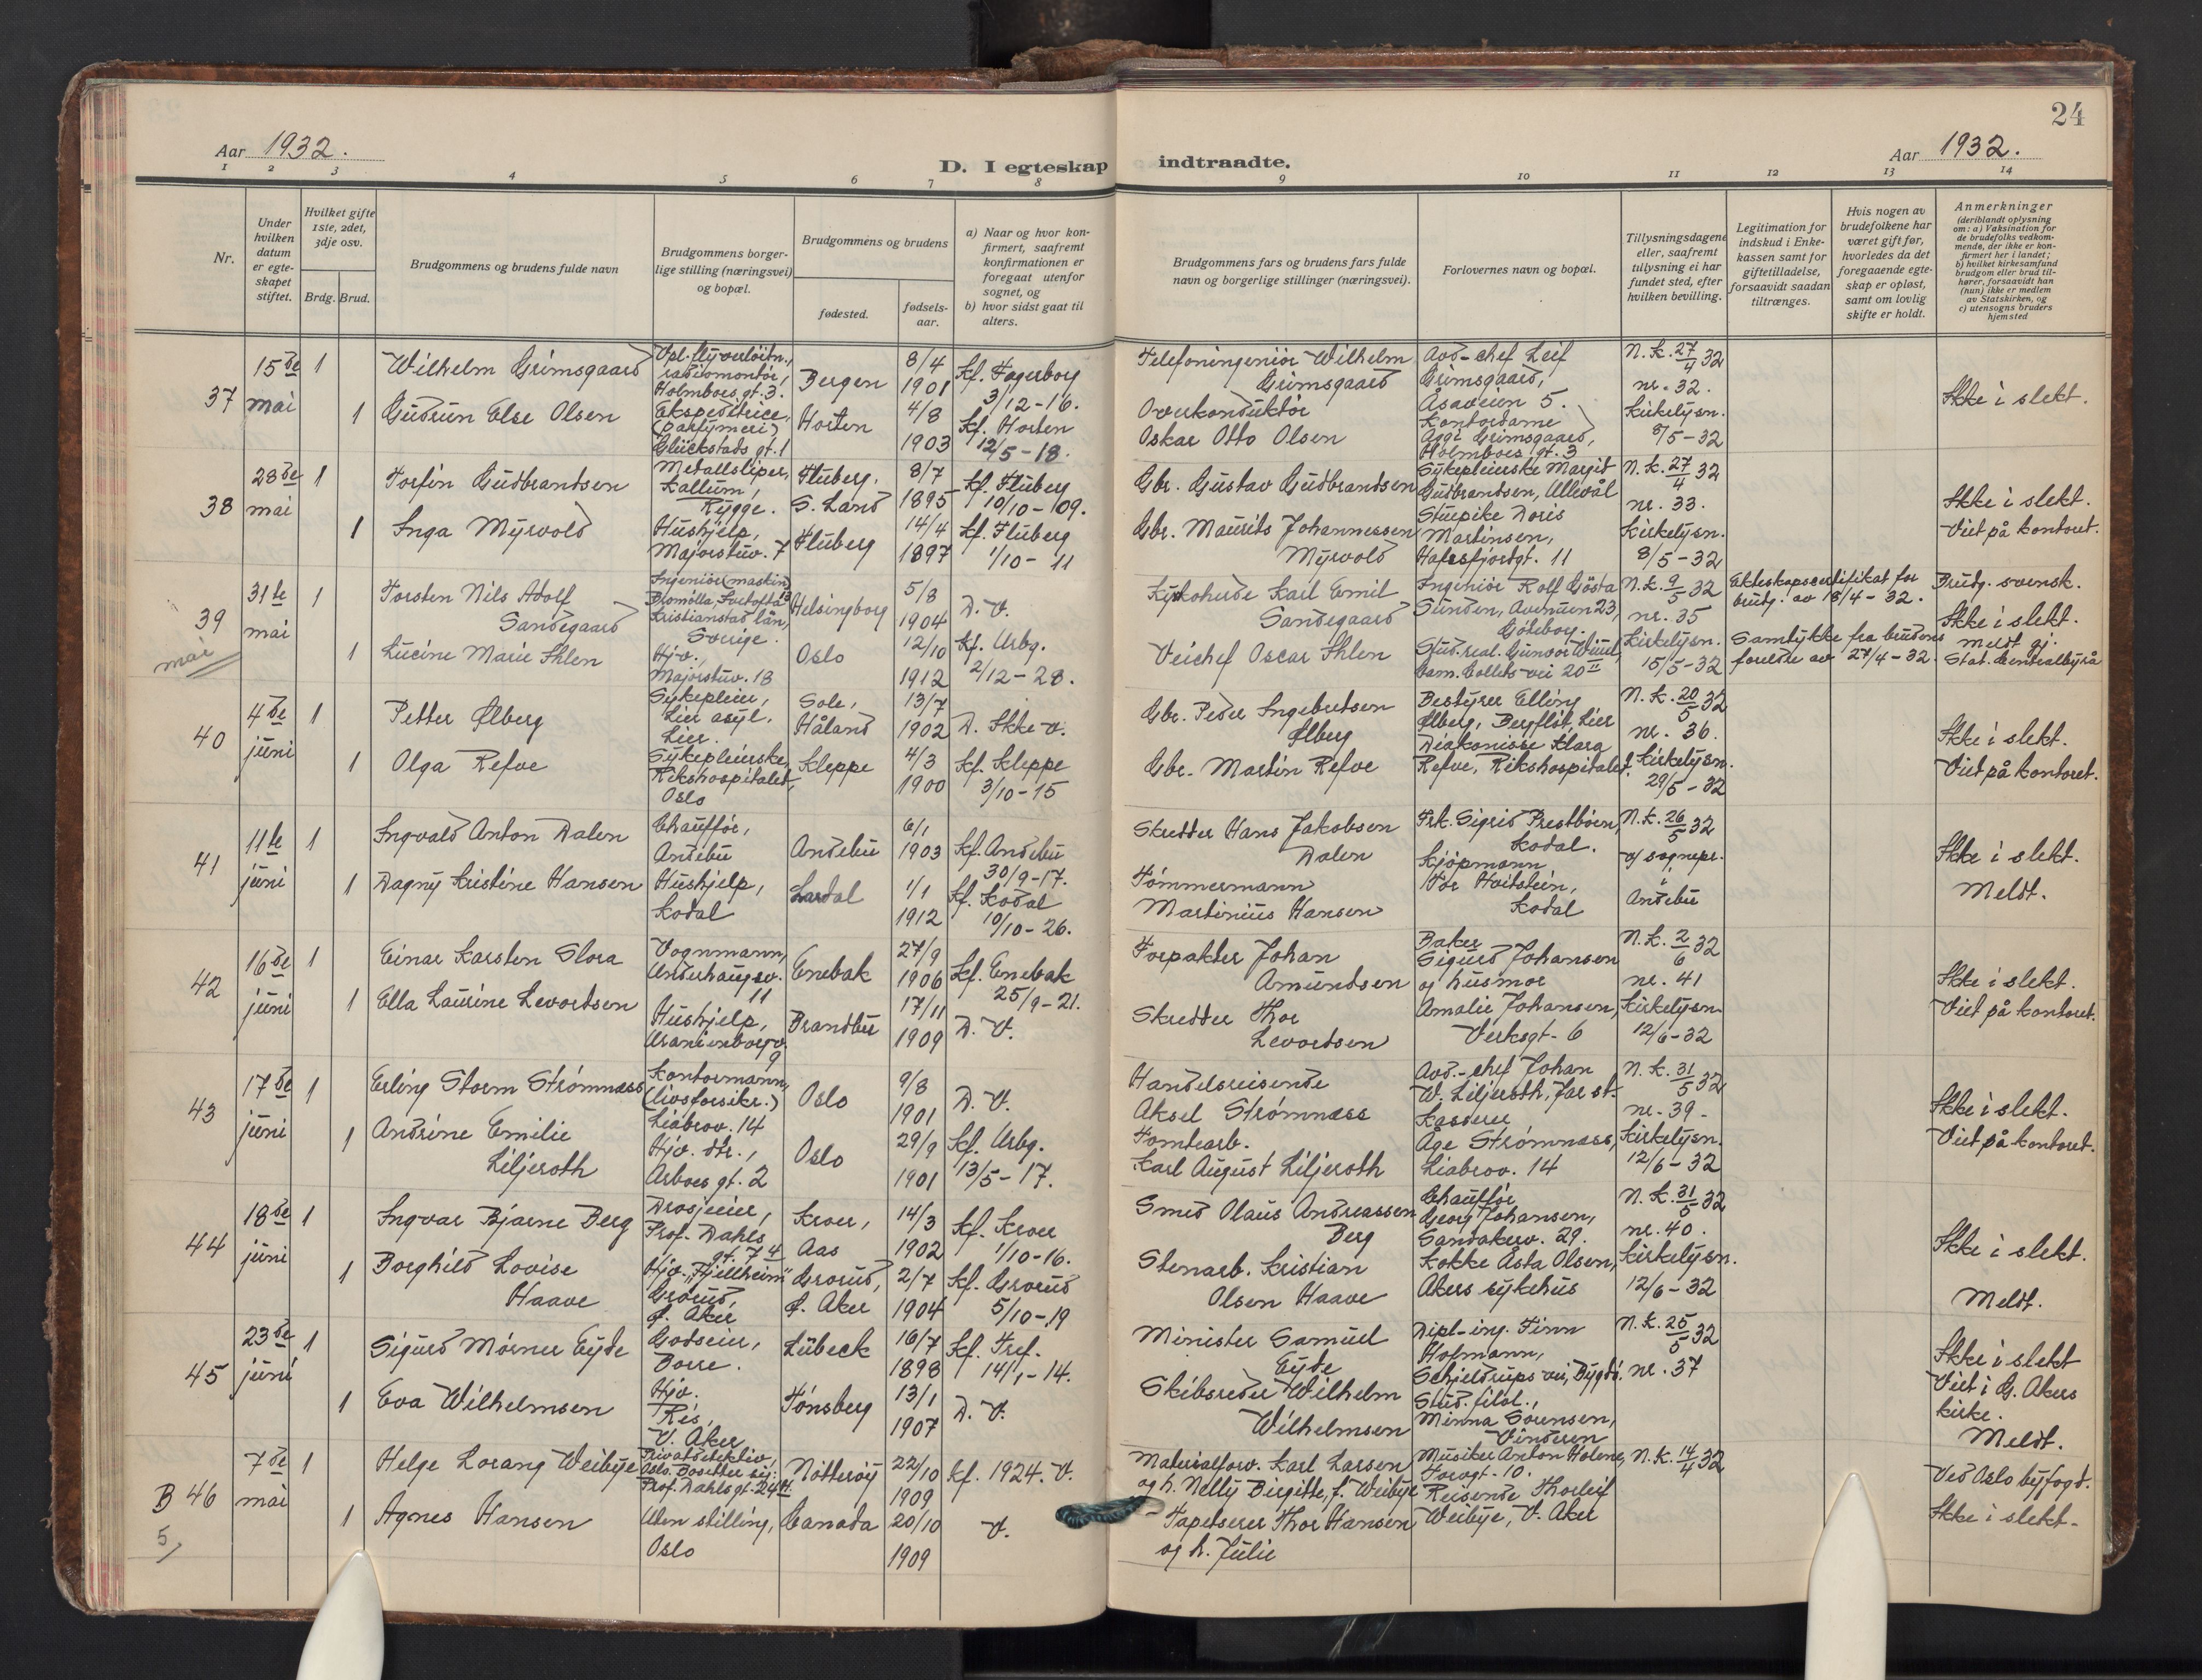 24
Aar 1932.
D. I egteskap indtraadte.
Aar 1932.
1 2 3 4 5 6 7 8 9 10 11 12 13 14
Nr.
Under hvilken datum er egteskapet stiftet.
Hvilket gifte 1ste, 2det, 3dje osv.
Brdg. Brud.
Brudgommens og brudens fulde navn
Brudgommens borgerlige stilling (næringsvei) og bopæl.
Brudgommens og brudens
fødested.
fødselsaar.
a) Naar og hvor konfirmert, saafremt konfirmationen er foregaat utenfor sognet, og
b) hvor sidst gaat til alters.
Brudgommens fars og brudens fars fulde navn og borgerlige stillinger (næringsvei).
Forlovernes navn og bopæl.
Tillysningsdagene eller, saafremt tillysning ei har fundet sted, efter hvilken bevilling.
Legitimation for indskud i Enkekassen samt for giftetilladelse, forsaavidt saadan tiltrænges.
Hvis nogen av brudefolkene har været gift før, hvorledes da det foregaaende egteskap er opløst, samt om lovlig skifte er holdt.
Anmerkninger
(deriblandt oplysning om: a) Vaksination for de brudefolks vedkommende, der ikke er konfirmert her i landet;
b) hvilket kirkesamfund brudgom eller brud tilhører, forsaavidt han (hun) ikke er medlem av Statskirken, og
c) utensogns bruders hjemsted
37
15de mai
1
Wilhelm Grimsgaard
radiomontør,
Holmboes gt. 3.
Bergen
8/4 1901
Kf. Fagerborg
3/12-16.
Telefoningeniør Wilhelm
Grimsgaard
Avd-chef Leif
Grimsgaard,
Åsaveien 5.
N.K. 27/4 32
nr. 32.
Kirkelysn.
8/5-32
Ikke i slekt.
1
Gudrun Else Olsen
Ekspeditrice,
(parfymeri)
Glückstads gt. 1
Horten
4/8 1903
Kf. Horten
12/5-18.
Overkonduktør
Oskar Otto Olsen
Kontordame
Aggi Grimsgaard,
Holmboes gt. 3
38
28de mai
1
Torfin Gudbrandsen
Metallsliper,
Kallum,
Rygge.
Fluberg,
S. Land
8/7 1895
Kf. Fluberg
10/10-109.
Gbr. Gustav Gudbrandsen
Sykepleierske Margit
Gudbrandsen, Ullevål
N.K. 27/4 32
nr. 33.
Kirkelysn.
8/5-32
Ikke i slekt.
Viet på kontoret.
1
Inga Myrvold
Hushjelp,
Majorstuv. 7
Fluberg
14/4 1897
Kf. Fluberg
1/10-11
Gbr. Maurits Johannessen
Myrvold
Stuepike Doris
Martinsen,
Hafrsfjordgt. 11
39
mai
31te mai
1
Torsten Nils Adolf
Sandegaard
Ingeniør (maskin)
Bromølla,
Kristianstad län,
Sverige.
Helsingborg
5/8 1904
D. V.
Karl Emil
Sandegaard
Ingeniør Rolf Gösta
Sunden, Avenuen 23,
Göteborg.
N.K. 9/5 32
nr. 35
Kirkelysn.
15/5-32
Ekteskapscertifikat for
brudg. av 18/4-32.
Samtykke fra brudens
foreldre av 27/4-32.
Brudg. svensk.
Ikke i slekt.
Meldt gj.
Stat. Centralbyrå
1
Lucine Marie Ihlen
Hjv.,
Majorstuv. 18
Oslo
12/10 1912
Kf. Urbg.
2/12-28.
Veichef Oscar Ihlen
Stud. real. Gunvor
Cam. Colletts vei 20 II
40
4de juni
1
Petter Ølberg
Sykepleier,
Lier asyl.
Lier.
Sole,
Håland
13/7 1902
D. Ikke v.
Gbr. Peder Ingebretsen
Ølberg
Bestyrer Elling
Ølberg, Bergfløt, Lier
N.K. 20/5 32
nr. 36.
Kirkelysn.
29/5-32
Ikke i slekt.
Viet på kontoret.
1
Olga Refve
Sykepleierske,
Rikshospitalet,
Oslo
Kleppe
4/3 1900
Kf. Kleppe
3/10-15
Gbr. Martin Refve
Diakonisse Klara
Refve, Rikshospitalet.
41
11te juni
1
Ingvald Anton Dalen
Chauffør,
Andebu
Andebu
6/1 1903
Kf. Andebu
30/9-17.
Skredder Hans Jakobsen
Dalen
Frk. Sigrid Prestbøen,
Kodal.
N.K. 26/5 32
v/ sognepr.
i
Andebu
Ikke i slekt.
Meldt.
1
Dagny Kristine Hansen
Hushjelp,
Kodal
Lardal
1/1 1912
Kf. Kodal
10/10-26.
Tømmermann
Martinius Hansen
Kjøpmann
Tor Hvitstein,
Kodal
42
16de juni
1
Einar Karsten Slora
Vognmann,
Anderhaugsv.
11
Enebak
27/9 1906
Kf. Enebak
25/9-21.
Forpakter Johan
Amundsen
Baker
Sigurd Johansen
og husmor
Amalie Johansen,
Verksgt. 6
N.K. 2/6 32
nr. 41
Kirkelysn.
12/6-32
Ikke i slekt.
Viet på kontoret.
1
Ella Laurine Levordsen
Hushjelp,
Uranienborgv.
9
Brandbu
17/11 1909
D. V.
Skredder Thor
Levordsen
43
17de juni
1
Erling Storm Strømnæss
Kontormann,
(livsforsikr.)
Liabrov. 14
Oslo
9/8 1901
D. V.
Handelsreisende
Aksel Strømnæss
Avd.-chef Johan
W. Liljeroth, Jar st.
N.K. 31/5 32
nr. 39.
Kirkelysn.
12/6-32
Ikke i slekt.
Viet på kontoret.
1
Andrine Emilie
Liljeroth
Hjv. dtr.,
Arboes gt. 2
Oslo
29/9 1901
Kf. Urbg.
13/5-17.
Tomtearb.
Karl August Liljeroth
Kasserer
Åge Strømnæss,
Liabrov. 14
44
18de juni
1
Ingvar Bjarne Berg
Drosjeeier,
Prof. Dahls
gt. 7 4
Kroer,
Aas
14/3 1902
Kf. Kroer
1/10-16.
Smed Olaus Andreassen
Berg
Chauffør
Georg Johansen,
Sandakerv. 29.
N.K. 31/5 32
nr. 40.
Kirkelysn.
12/6-32
Ikke i slekt.
Meldt.
1
Borghild Lovise
Haave
Hjv. "Fjellheim"
Grorud,
Ø. Aker
Grorud,
Ø. Aker
2/7 1904
Kf. Grorud
5/10-19
Stenarb. Kristian
Olsen Haave
Kokke Asta Olsen,
Akers sykehus
45
23de juni
1
Sigurd Mørner Eyde
Godseier,
Borre.
Lübeck
16/7 1898
Kf. Tref.
14/1-14.
Minister Samuel
Eyde
Dipl-ing. Finn
Hofmann,
Schjeldrups vei, Bygdø.
N.K. 25/5 32
nr. 37
Ikke i slekt
Viet i G. Akers
kirke.
Meldt.
1
Eva Wilhelmsen
Hjv.
Ris,
V. Aker
Tønsberg
13/1 1907
D. V.
Skibsreder Wilhelm
Wilhelmsen
Stud. filol.,
Minna Sørensen,
Vinderen
B 46
5/
7de mai
1
Helge Lorang Weibye
Privatdetektiv,
Oslo. Bosetter sig:
Prof. Dahlsgt. 24 II.
Nøtterøy
22/10 1909
Kf. 1924. V.
Materialforv. Karl Larsen
og h. Nelly Birgitte, f. Weibye
Musiker Anton Holene,
Torvgt. 10.
N.K. 14/4 32
Ved Oslo byfogd.
Ikke i slekt.
1
Agnes Hansen
Uten stilling,
Oslo
Canada
20/10 1909
V.
Tapetserer Thor Hansen
og h. Julie
Reisende Thorleif
Weibye, V. Aker